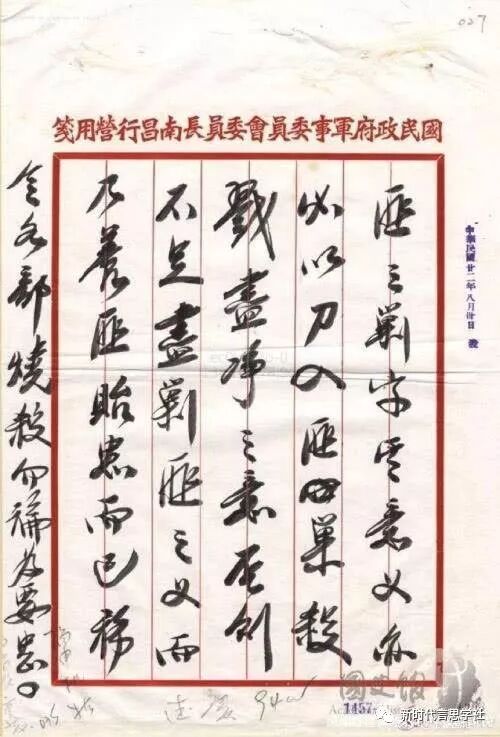 027
國民政府軍事委員會委員長南昌行營用箋
中華民國廿二年八月卅日
匪之剿字意义亦
必以刀入匪巢殺
戮盡淨之意否則
不足盡剿匪之义而
乃養匪貽患而已希
令各部燒殺勿論為要
國史館
1457
新时代言思学社